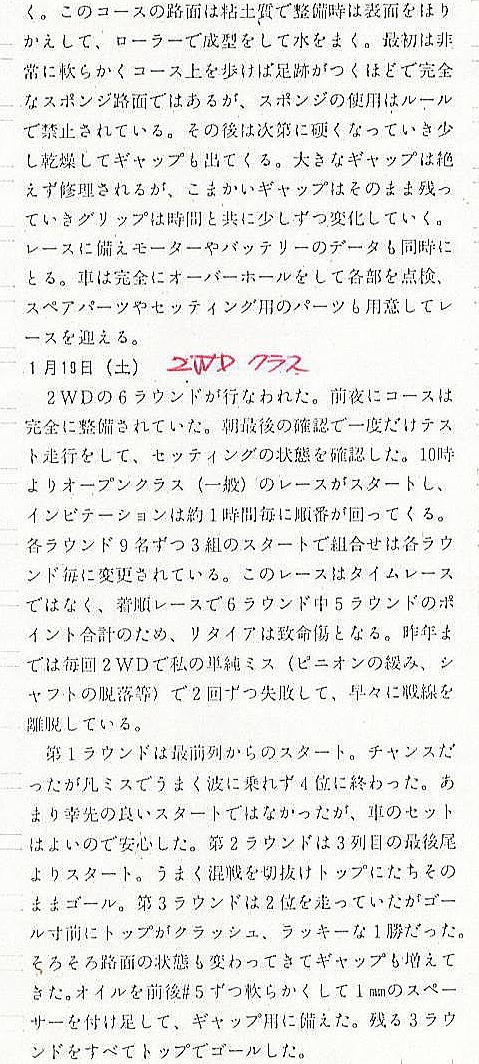 く。このコースの路面は粘土質で整備時は表面をほり
かえして、ローラーで成型をして水をまく。最初は非
常に軟らかくコース上を歩けば足跡がつくほどで完全
なスポンジ路面ではあるが、スポンジの使用はルール
で禁止されている。その後は次第に硬くなっていき少
し乾燥してギャップも出てくる。大きなギャップは絶
えず修理されるが、こまかいギャップはそのまま残っ
ていきグリップは時間と共に少しずつ変化していく。
レースに備えモーターやバッテリーのデータも同時に
とる。車は完全にオーバーホールをして各部を点検、
スペアパーツやセッティング用のパーツも用意してレ
ースを迎える。
1月19日（土） 2WDクラス
　2WDの6ラウンドが行なわれた。前夜にコースは
完全に整備されていた。朝最後の確認で一度だけテス
ト走行をして、セッティングの状態を確認した。10時
よりオープンクラス（一般）のレースがスタートし、
インビテーションは約1時間毎に順番が回ってくる。
各ラウンド9名ずつ3組のスタートで組合せは各ラウ
ンド毎に変更されている。このレースはタイムレース
ではなく、着順レースで6ラウンド中5ラウンドのポ
イント合計のため、リタイアは致命傷となる。昨年ま
では毎回2WDで私の単純ミス（ピニオンの緩み、シ
ャフトの脱落等）で2回ずつ失敗して、早々に戦線を
離脱している。
　第1ラウンドは最前列からのスタート。チャンスだ
ったが凡ミスでうまく波に乗れず4位に終わった。あ
まり幸先の良いスタートではなかったが、車のセット
はよいので安心した。第2ラウンドは3列目の最後尾
よりスタート。うまく混戦を切抜けトップにたちその
ままゴール。第3ラウンドは2位を走っていたがゴー
ル寸前にトップがクラッシュ、ラッキーな1勝だった。
そろそろ路面の状態も変わってきてギャップも増えて
きた。オイルを前後#5ずつ軟らかくして1㎜のスペー
サーを付け足して、ギャップ用に備えた。残る3ラウ
ンドをすべてトップでゴールした。